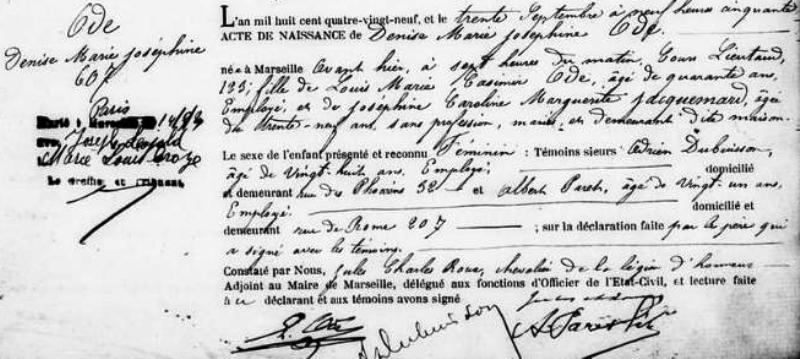 Ode
Denise Marie Joséphine
607
Paris
Marié à
avec Joseph Léopold
Marie Louis
Le greffier en
L'an mil huit cent quatre-vingt-neuf, et le trente Septembre à neuf heures cinquante
ACTE DE NAISSANCE de Denise Marie Joséphine Ode.
née à Marseille avant hier, à sept heures du matin, Cours Lieutaud,
135; fille de Louis Marie Casimir Ode, âgé de quarante ans,
Employé, et de Joséphine Caroline Marguerite Jacquemard, âgée
de trente-neuf ans, sans profession, mariés, et demeurant dite maison.
Le sexe de l'enfant présenté et reconnu Féminin : Témoins sieurs Adrien Dubuisson,
âgé de vingt-huit ans, Employé, domicilié
et demeurant rue des Phocéens 32 et Albert Paret, âgé de vingt-un ans,
Employé, domicilié et
demeurant rue de Rome 207 ; sur la déclaration faite par le père qui
a signé avec les témoins.
Constaté par Nous, Jules Charles Roux, chevalier de la légion d'honneur
Adjoint au Maire de Marseille, délégué aux fonctions d'Officier de l'Etat-Civil, et lecture faite
au déclarant et aux témoins avons signé
Ode
Dubuisson